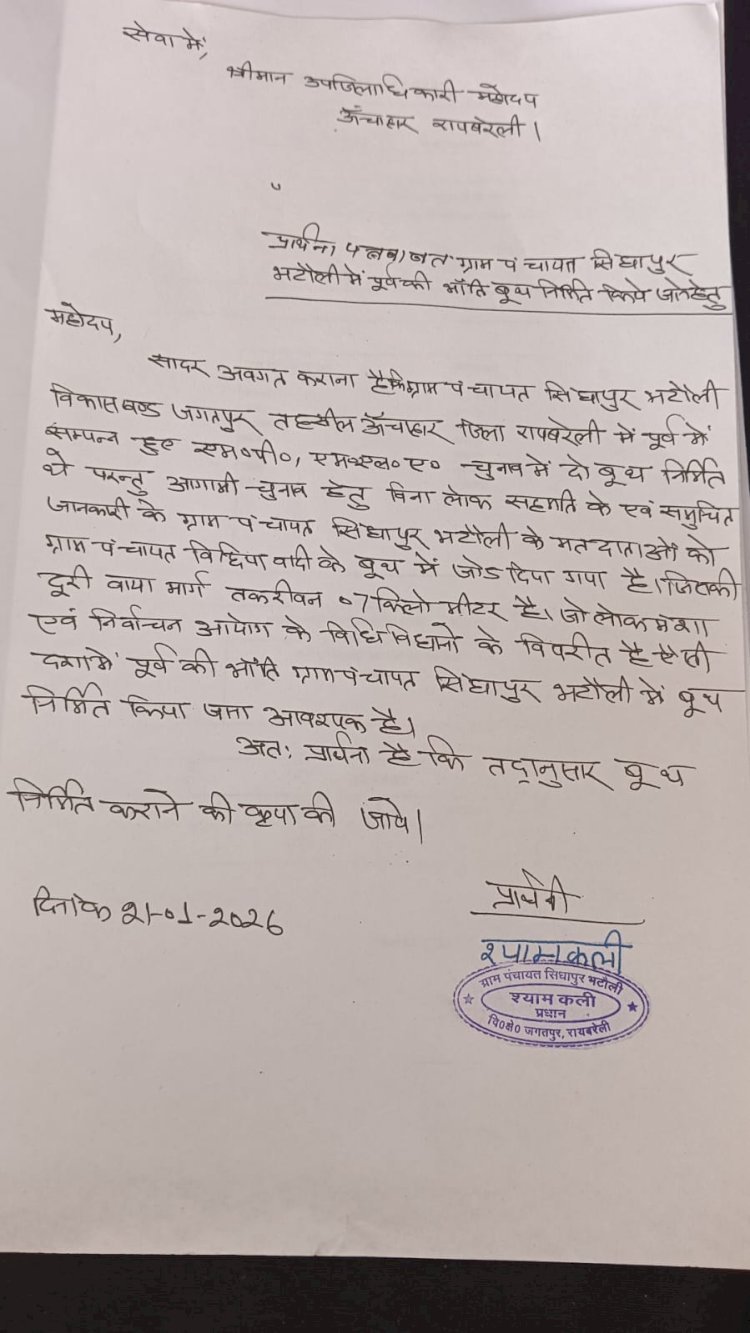 सेवा में,
श्रीमान उपजिलाधिकारी महोदय
ऊँचाहार रायबरेली।
प्रार्थना पत्र बाबत ग्राम पंचायत सिधापुर
भटौली में पूर्व की भाँति बूथ निर्मित किये जाने हेतु
महोदय,
सादर अवगत कराना है कि ग्राम पंचायत सिधापुर भटौली
विकासखण्ड जगतपुर तहसील ऊँचाहार जिला रायबरेली में पूर्व में
सम्पन्न हुए एम०पी०, एम०एल०ए० चुनाव में दो बूथ निर्मित
थे परन्तु आगामी चुनाव हेतु बिना लोक सहमति के एवं समुचित
जानकारी के ग्राम पंचायत सिधापुर भटौली के मतदाताओं को
ग्राम पंचायत विधिपा वादी के बूथ में जोड दिया गया है। जिसकी
दूरी वाया मार्ग तकरीवन ०7 किलो मीटर है। जो लोक मंशा
एवं निर्वाचन आयोग के विधि विधानो के विपरीत है ऐसी
दशा में पूर्व की भाँति ग्राम पंचायत सिधापुर भटौली में बूथ
निर्मित किया जाना आवश्यक है।
अतः प्रार्थना है कि तद्नुसार बूथ
निर्मित कराने की कृपा की जाये।
दिनांक 21-01-2026
प्रार्थनी
श्यामकली
ग्राम पंचायत सिधापुर भटौली
श्याम कली
प्रधान
वि०क्षे० जगतपुर, रायबरेली